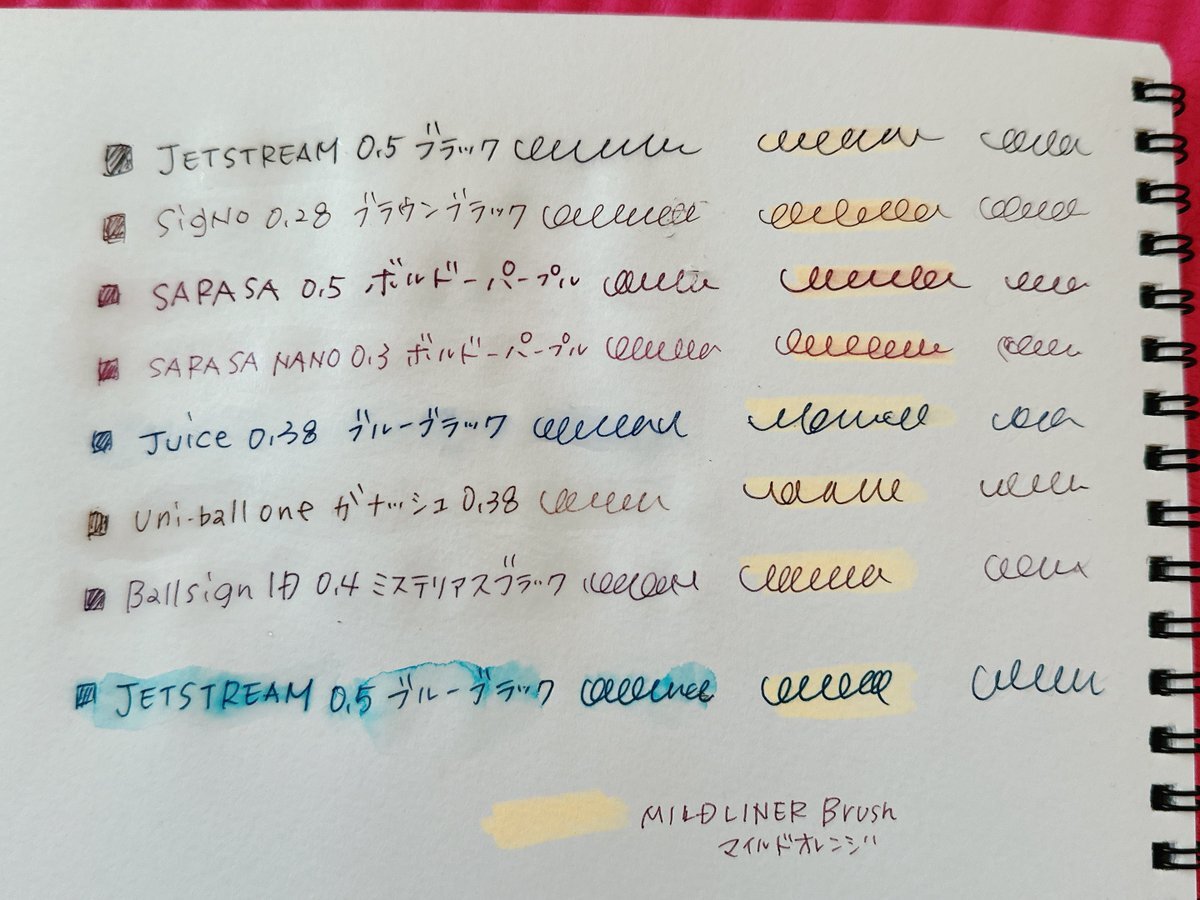 JETSTREAM 0.5 ブラック
SigNo 0.28 ブラウンブラック
SARASA 0.5 ボルドーパープル
SARASA NANO 0.3 ボルドーパープル
Juice 0.38 ブルーブラック
Uni-ball one ガナッシュ 0.38
Ballsign iD 0.4 ミステリアスブラック
JETSTREAM 0.5 ブルーブラック
MILDLINER Brush
マイルドオレンジ